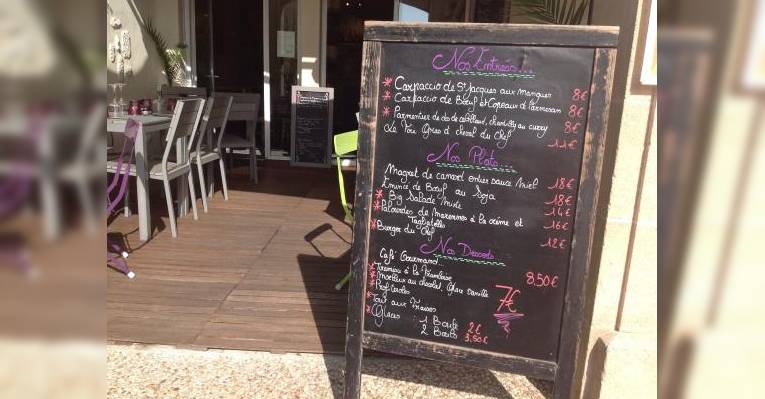 Nos Entrées...
* Carpaccio de St Jacques aux mangues 8€
* Carpaccio de Bœuf et Copeaux de Parmesan 8€
* Parmentier de dos de cabillaud, chantilly au curry 8€
Le Foie Gras d cheval du Chef 11€
Nos Plats...
Magret de canard entier sauce miel 18€
Emincé de Bœuf au Soja 18€
* Big Salade Mixte 14€
* Palourdes de Marennes à la crème et
Tagliatelles 16€
* Burger du Chef 12€
Nos Desserts...
Café Gourmand... 8,50€
* Tiramisu à la Framboise
* Moelleux au chocolat, Glace vanille
* Profiteroles 7€
* Tarte aux Fraises
* Glaces 1 Boule 2€
2 Boules 3,50€